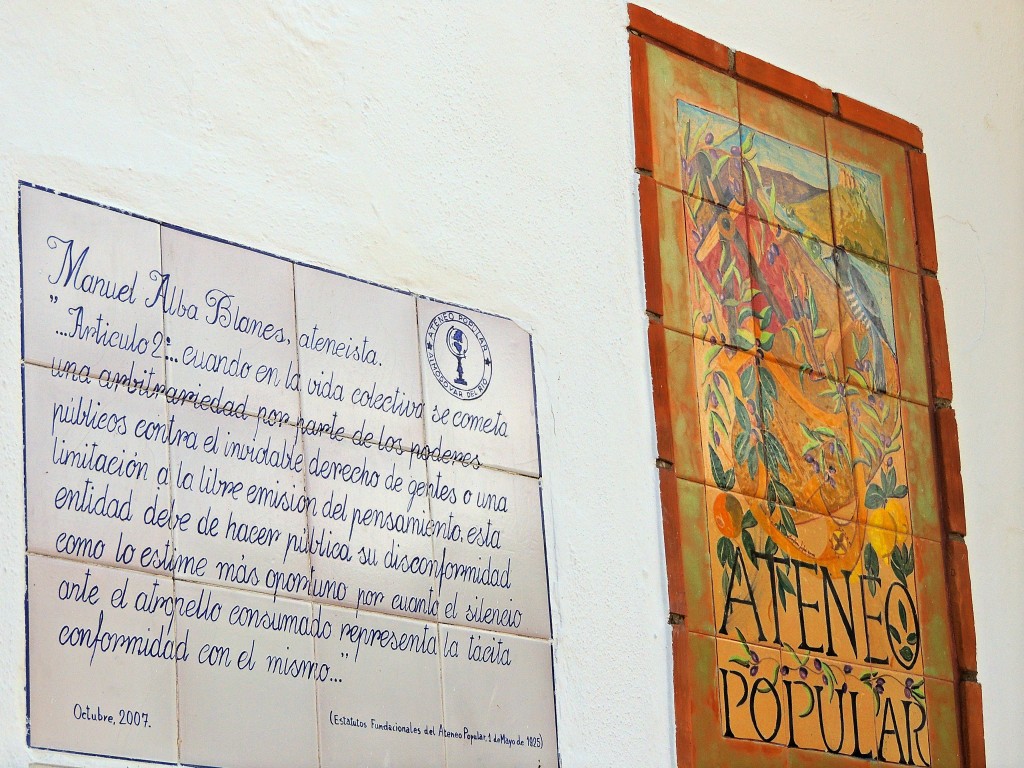 Manuel Alba Blanes, ateneista.
"...Articulo 2º... cuando en la vida colectiva se cometa
una arbitrariedad por parte de los poderes
públicos contra el inviolable derecho de gentes o una
limitación a la libre emisión del pensamiento, esta
entidad debe de hacer pública su disconformidad
como lo estime más oportuno por cuanto el silencio
ante el atropello consumado representa la tácita
conformidad con el mismo..."
Octubre, 2007.
(Estatutos Fundacionales del Ateneo Popular. 1 de Mayo de 1925)
ATENEO POPULAR
ALMODOVAR DEL RIO
ATENEO
POPULAR